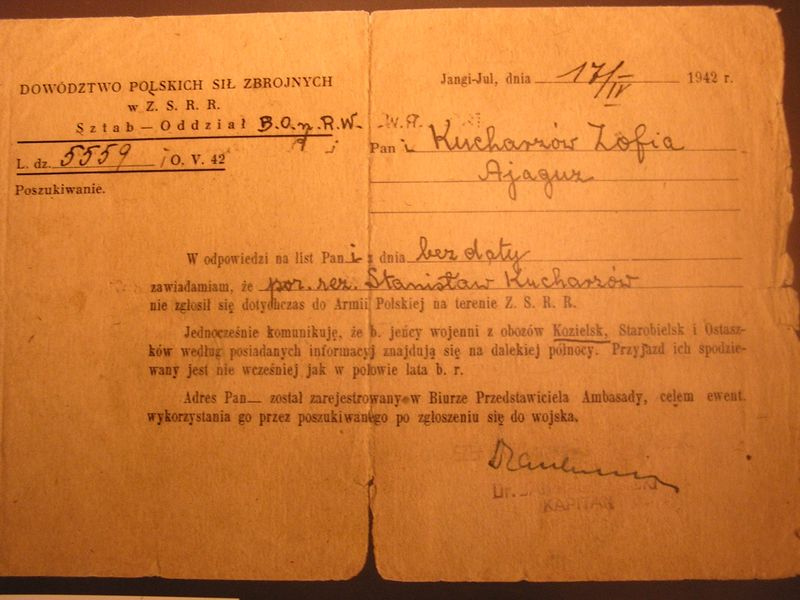 DOWÓDZTWO POLSKICH SIŁ ZBROJNYCH
w Z. S. R. R.
Sztab — Oddział B.O.n.R.W.
L. dz. 5559 / O. V. 42
Poszukiwanie.
Jangi-Jul, dnia 17/IV 1942 r.
W.P.
Pan i Kucharzów Zofia
Ajaguz
W odpowiedzi na list Pani z dnia bez daty
zawiadamiam, że por. rez. Stanisław Kucharzów
nie zgłosił się dotychczas do Armii Polskiej na terenie Z. S. R. R.
Jednocześnie komunikuję, że b. jeńcy wojenni z obozów Kozielsk, Starobielsk i Ostasz-
ków według posiadanych informacyj znajdują się na dalekiej północy. Przyjazd ich spodzie-
wany jest nie wcześniej jak w połowie lata b. r.
Adres Pan— został zarejestrowany w Biurze Przedstawiciela Ambasady, celem ewent.
wykorzystania go przez poszukiwanego po zgłoszeniu się do wojska.
Dr.
KAPITAN